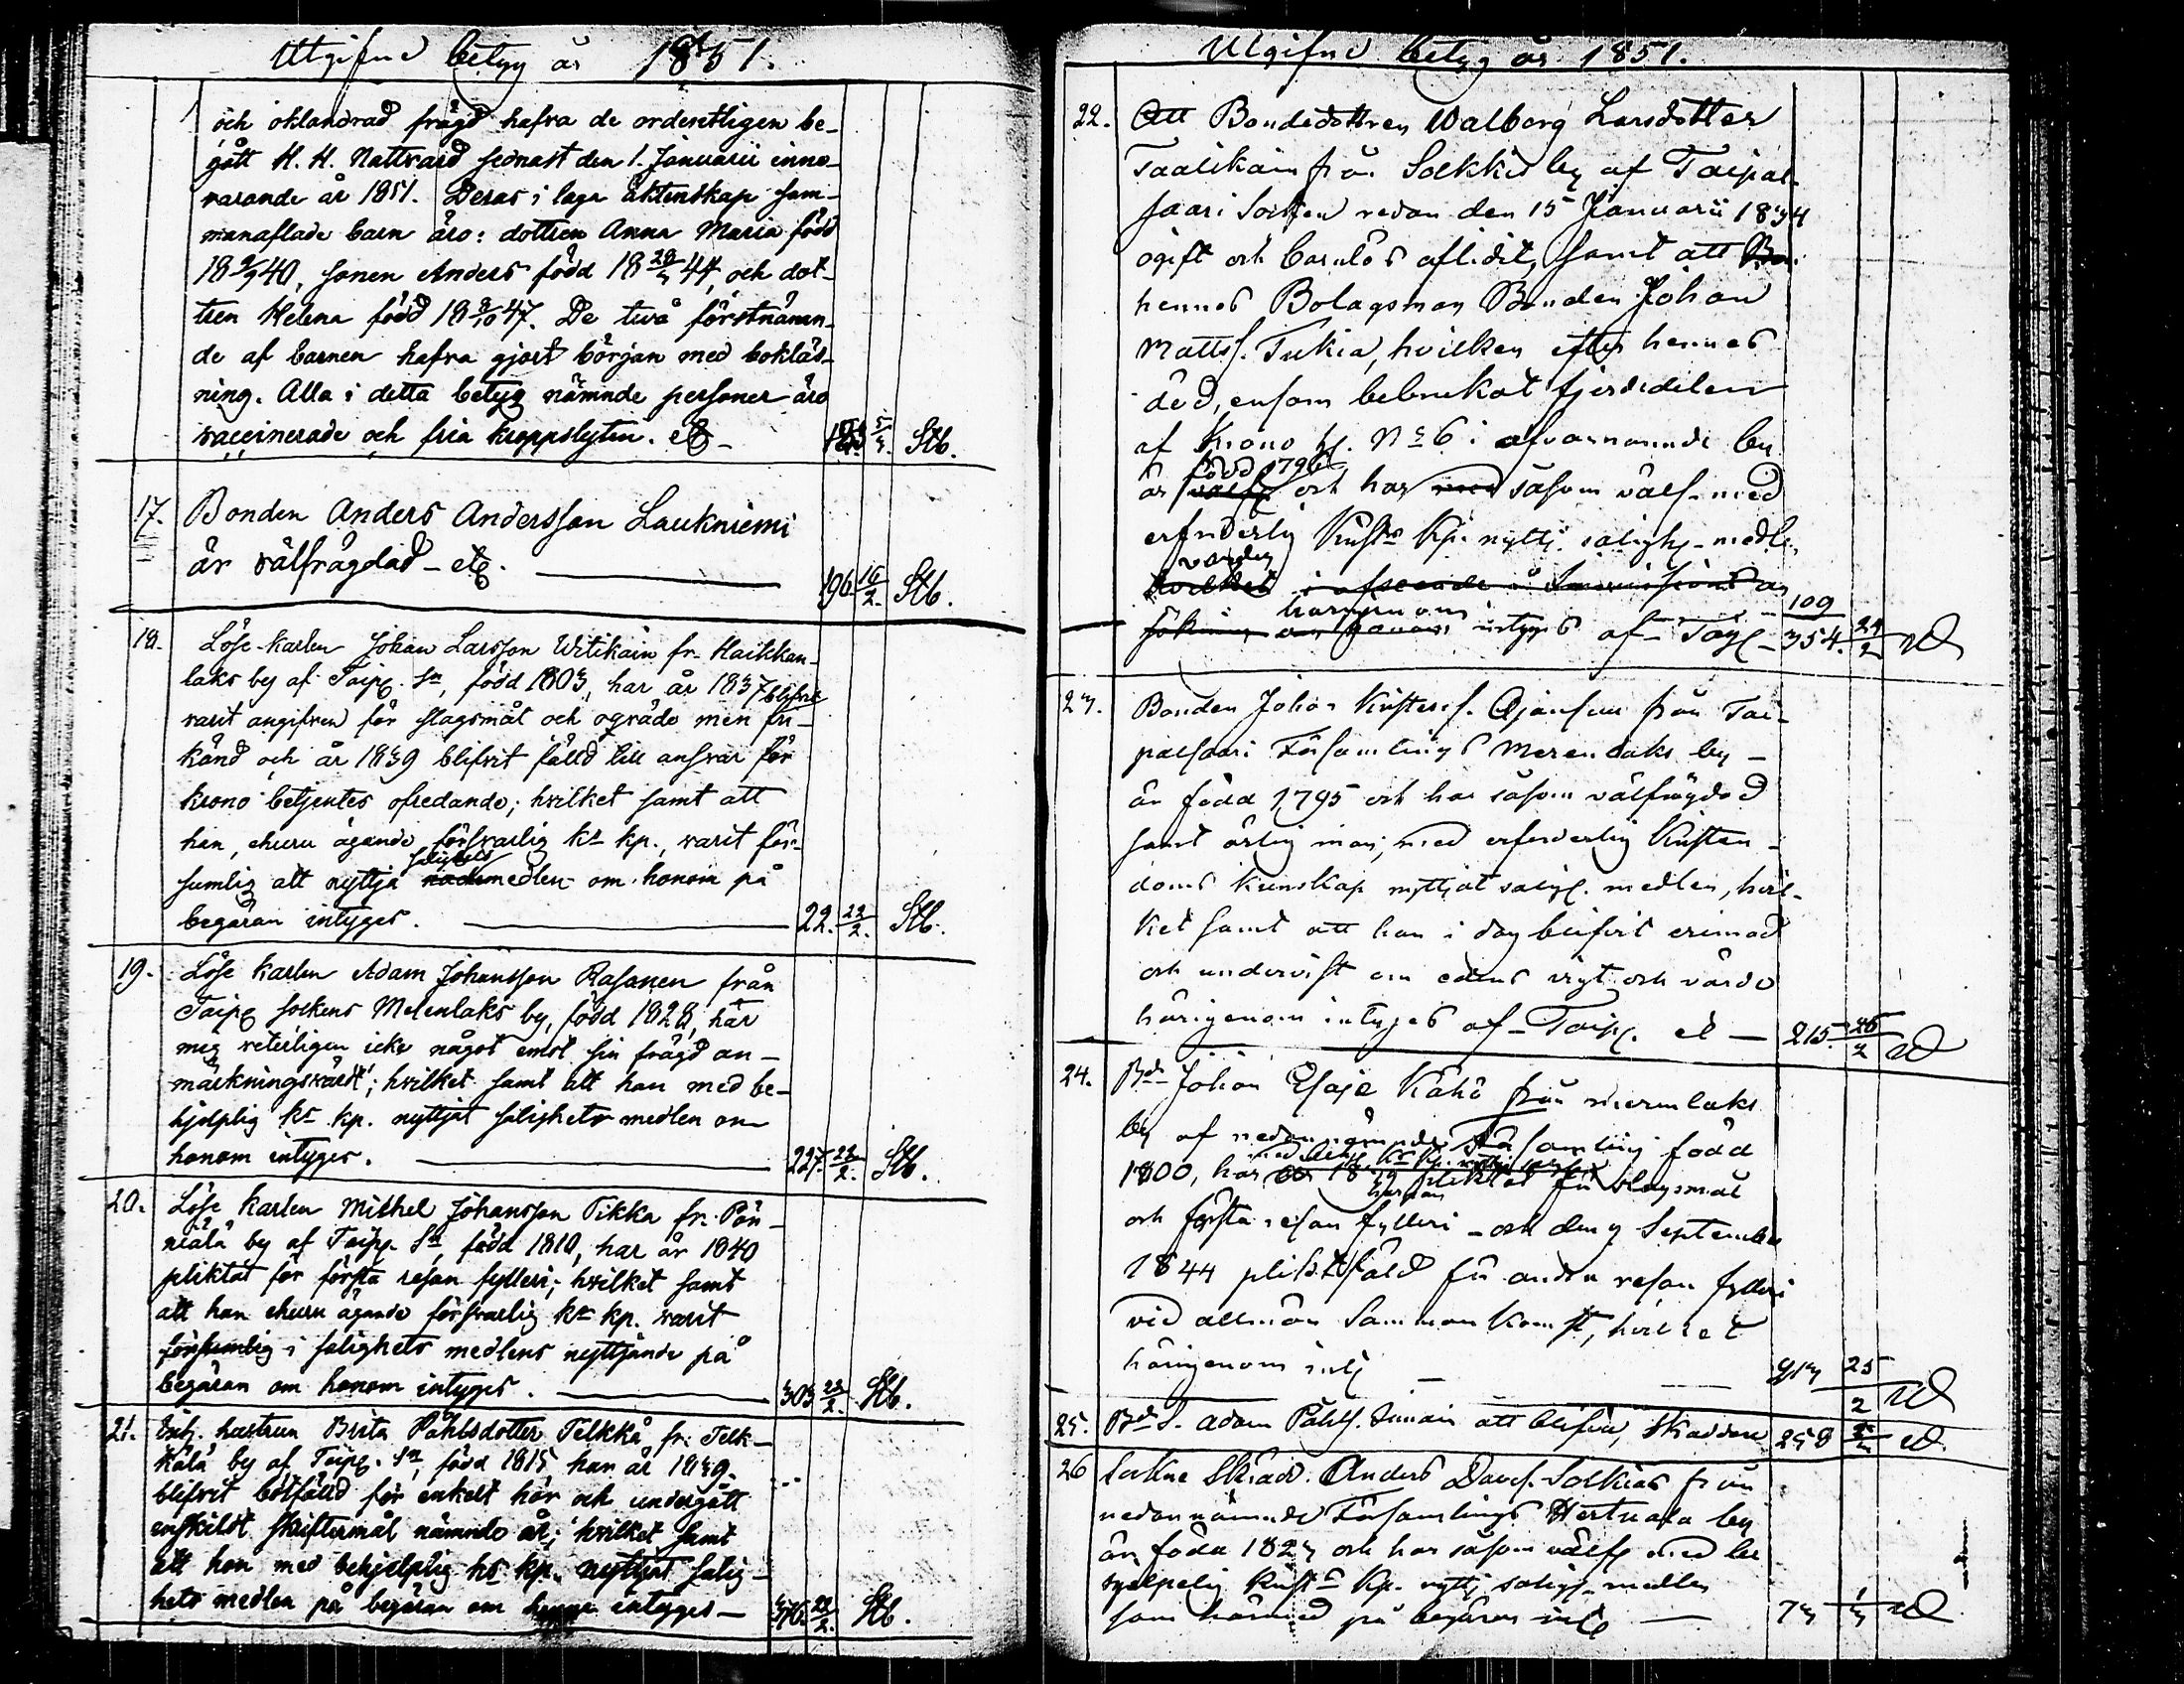 Utgifne betyg år 1851.
och oklandrad frägd hafva de ordentligen be-
gått H. H. Nattvard sednast den 1. Januarii inne-
varande år 1851. Deras i laga äktenskap sam-
manaflade barn äro: dottren Anna Maria född
18 9/9 40, sonen Anders född 18 28/3 44, och dot-
tren Helena född 18 8/10 47. De två förstnämn-
de af barnen hafva gjort början med bokläs-
ning. Alla i detta betyg nämnde personer äro
vaccinerade och fria kroppslyten. etc - 5/2. Stb.
17. Bonden Anders Andersson Laukniemi
är välfrägdad - etc. 196. 16/2. Stb.
18. Löse-karlen Johan Larsson Utikain fr. Haikkan-
laks by af Taip. Sn, född 1803, har år 1837 blifvit
varit angifven för slagsmål och oqväde men fri-
känd och år 1839 blifvit fälld till ansvar för
krono betjentes ofredande; hvilket samt att
han, ehuru ägande försvarlig kr kp., varit för-
salighets
sumlig att nyttja nådemedlen om honom på
begäran intyges. 22. 22/2. Stb.
19. Löse karlen Adam Johansson Rasanen från
Taip. sockens Merenlaks by, född 1828, har
mig veterligen icke något emot sin frägd an-
märkningsvärdt; hvilket samt att han med be-
hjelplig kr kp. nyttjat salighets medlen om
honom intyges. 227. 22/2. Stb.
20. Löse karlen Mithel Johansson Tikka fr. Pön-
niälä by af Taip. Sn, född 1810, har år 1840
pliktat för första resan fylleri; hvilket samt
att han ehuru ägande försvarlig kr kp. varit
försumlig i salighets medlens nyttjande på
begäran om honom intyges. 303 22/2. Stb.
21. Inh. hustrun Brita Påhlsdotter Telkkä fr. Telk-
kälä by af Taip. Sn, född 1815 har år 1839.
blifvit bötfälld för enkelt hor och undergått
enskildt skriftermål nämnde år; hvilket samt
att hon med behjelplig kr kp. nyttjat salig-
hets medlen på begäran om henne intyges - 376. 22/2. Stb.
Utgifne betyg år 1851.
22. Att Bondedottren Walborg Larsdotter
Taalikain från Solkkis by af Taipal-
saari Socken redan den 15 Januarii 1834
ogift och barnlös aflidit, samt att Bon
hennes Bolagsman Bonden Johan
Matts. Tukia, hvilken efter hennes
död, ensam bebrukat fjerdedelen
af Krono h. N:o 6 i ofvannämnde by
född 1796
är välf. och har med såsom välf. med
erforderlig Krist. Kp. nyttj. saligh. medlen
varder
hvilket i afseende å
härigenom
sökning intygas af Taip. 109 354. 24/2
23. Bonden Johan Kristers. Ojansuu från Tai-
palsaari Församlings Merenlaks by -
är född 1795 och har såsom välfrägdad
samt ärlig man, med erforderlig Kristen-
doms kunskap nyttjat saligh. medlen, hvil-
ket samt att han i dag blifvit erinrad
och undervist om edens vigt och värde
härigenom intyges af Taip. 215. 25/2
24. Bd. Johan Esaja Kähö från Merenlaks
by af nedannämnde Församling född
1800, har pliktat för slagsmål
och första resan fylleri - och den 7 September
1844 pliktfäld för andra resan fylleri
vid allmän Sammankomst, hvilket
härigenom inty 25/2
25. Bd. S. Adam Påhls. att blifva skräddare 258
26 Sockne Skrädd. Anders Davids. Solkias från
nedannämnde Församlings Hertuala by
är född 1823 och har såsom välf. med be
hjelplig Krist. Kp. nyttj. saligh. medlen
som härmed på begäran inty 73